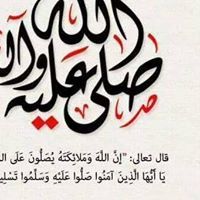 الله
صلى عليه وآل
قال تعالى: "إنَّ اللَّهَ وَمَلَائِكَتَهُ يُصَلُّونَ عَلَى
يَا أَيُّهَا الَّذِينَ آمَنُوا صَلُّوا عَلَيْهِ وَسَلِّمُوا